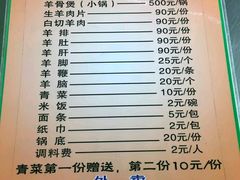 羊骨煲（小锅） 500元/锅
生羊肉片 90元/份
白切羊肉 90元/份
羊排 90元/份
羊肚 90元/份
羊肝 90元/份
羊脚 25元/个
羊鞭 20元/条
羊脑 20元/个
青菜 10元/份
米饭 2元/碗
面条 5元/包
纸巾 2元/包
锅底 20元/份
调料费 2元/人
青菜第一份赠送，第二份10元/份